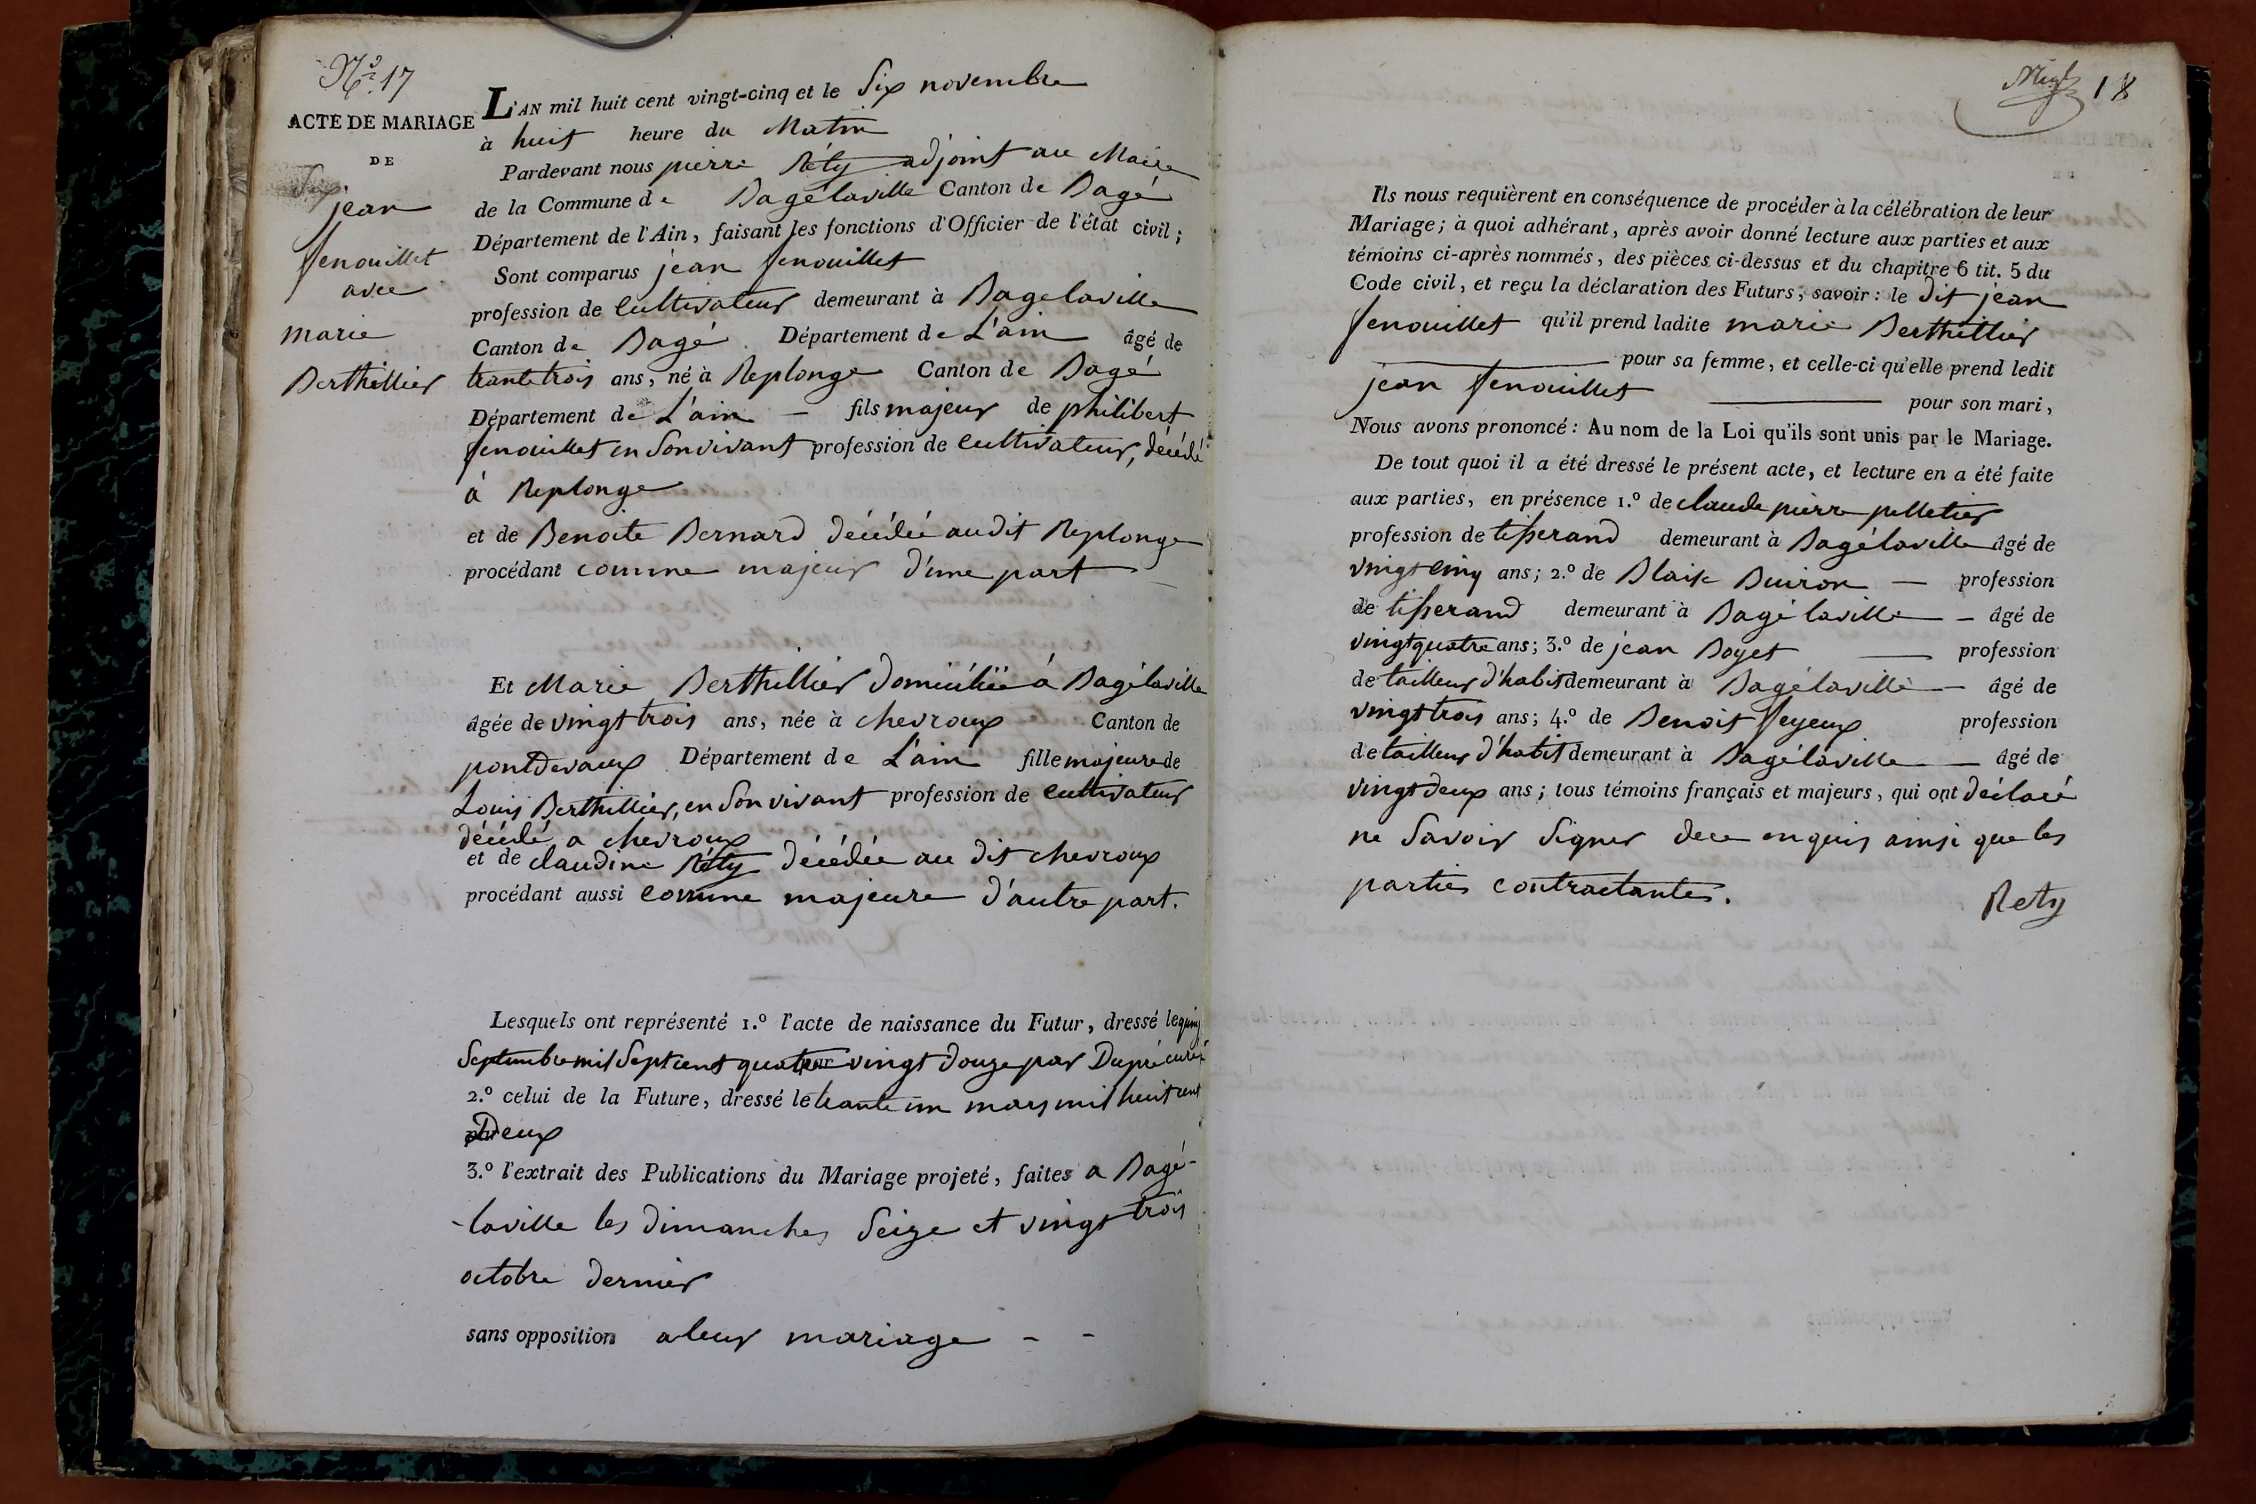 N.º 17
ACTE DE MARIAGE
DE
jean
fenouillet
avec
marie
Berthillier
L'AN mil huit cent vingt-cinq et le Six novembre
à huit heure du Matin
Pardevant nous pierre Réty adjoint au Maire
de la Commune de Bagélaville Canton de Bagé
Département de l'Ain, faisant les fonctions d'Officier de l'état civil;
Sont comparus jean fenouillet
profession de Cultivateur demeurant à Bagelaville
Canton de Bagé Département de L'ain âgé de
trante trois ans, né à Replonge Canton de Bagé
Département de L'ain — fils majeur de philibert
fenouillet en Son vivant profession de Cultivateur, décédé
à Replonge
et de Benoite Bernard décédée audit Replonge
procédant comme majeur d'une part —
Et Marie Berthillier domiciliée à Bagélaville
âgée de vingt trois ans, née à chevroux Canton de
pontdevaux Département de L'ain fille majeure de
Louis Berthillier, en Son vivant profession de Cultivateur
décédé a chevroux
et de claudine Réty décédée au dit chevroux
procédant aussi comme majeure d'autre part.
Lesquels ont représenté 1.º l'acte de naissance du Futur, dressé le quinz
Septembre mil Sept cent quatre vingt douze par Dupré curé
2.º celui de la Future, dressé le trante un mars mil huit cent
Deux
3.º l'extrait des Publications du Mariage projeté, faites a Bagé-
-laville les dimanches Seize et vingt trois
octobre dernier
sans opposition a leur mariage - -
18
Ils nous requièrent en conséquence de procéder à la célébration de leur
Mariage; à quoi adhérant, après avoir donné lecture aux parties et aux
témoins ci-après nommés, des pièces ci-dessus et du chapitre 6 tit. 5 du
Code civil, et reçu la déclaration des Futurs, savoir: le dit jean
fenouillet qu'il prend ladite marie Berthillier
— pour sa femme, et celle-ci qu'elle prend ledit
jean fenouillet — pour son mari,
Nous avons prononcé: Au nom de la Loi qu'ils sont unis par le Mariage.
De tout quoi il a été dressé le présent acte, et lecture en a été faite
aux parties, en présence 1.º de claude pierre pelletier
profession de tisserand demeurant à Bagélaville âgé de
vingt cinq ans; 2.º de Blaise Buiron — profession
de tisserand demeurant à Bagélaville — âgé de
vingt quatre ans; 3.º de jean Boyet — profession
de tailleur d'habit demeurant à Bagélaville — âgé de
vingt trois ans; 4.º de Benoit feyeux profession
de tailleur d'habit demeurant à Bagélaville — âgé de
vingt deux ans; tous témoins français et majeurs, qui ont déclaré
ne Savoir Signer de ce enquis ainsi que les
parties contractantes.
Rety